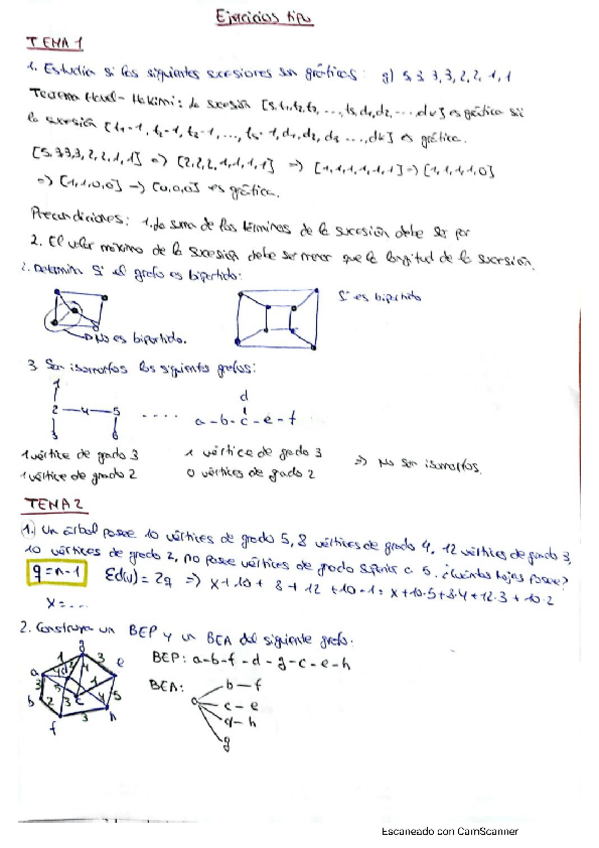 Ejercicios tipo
TEMA 1
1. Estudia si las siguientes sucesiones son gráficas: g) 5,3 3,3,2,2,1,1
Teorema Havel-Hakimi: la sucesión [S,t1,t2,t3,...,ts,d1,d2,...dk] es gráfica si
la sucesión [t1-1, t2-1, t3-1, ..., ts-1, d1,d2,d3 ...dk] es gráfica.
[5,3,3,3,2,2,1,1] => [2,2,2,1,1,1,1] => [1,1,1,1,1,1] => [1,1,1,1,0]
=> [1,1,0,0] => [0,0,0] es gráfica.
Precondiciones: 1. la suma de los términos de la sucesión debe ser par
2. El valor máximo de la sucesión debe ser menor que la longitud de la sucesión.
2. Determina si el grafo es bipartido:
Sí es bipartido
No es bipartido.
3. Son isomorfos los siguientes grafos:
1
d
2 - 4 - 5 .... a - b - c - e - f
3 6
1 vértice de grado 3 1 vértice de grado 3
=> No son isomorfos.
1 vértice de grado 2 0 vértices de grado 2
TEMA 2
1. Un árbol posee 10 vértices de grado 5, 8 vértices de grado 4, 12 vértices de grado 3,
10 vértices de grado 2, no posee vértices de grado superior a 5. ¿Cuántas hojas posee?
q = n - 1 Σd(v) = 2q => x + 10 + 8 + 12 + 10 - 1 = x + 10·5 + 8·4 + 12·3 + 10·2
x = ...
2. Construya un BEP y un BEA del siguiente grafo:
BEP: a-b-f-d-g-c-e-h
BEA:
b - f
c - e
d - h
g
a b f h e g
Escaneado con CamScanner